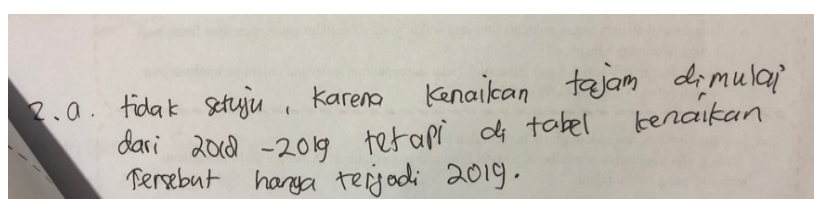 2.a. tidak setuju, karena kenaikan tajam dimulai
dari 2018 - 2019 tetapi di tabel kenaikan
Tersebut hanya terjadi 2019.